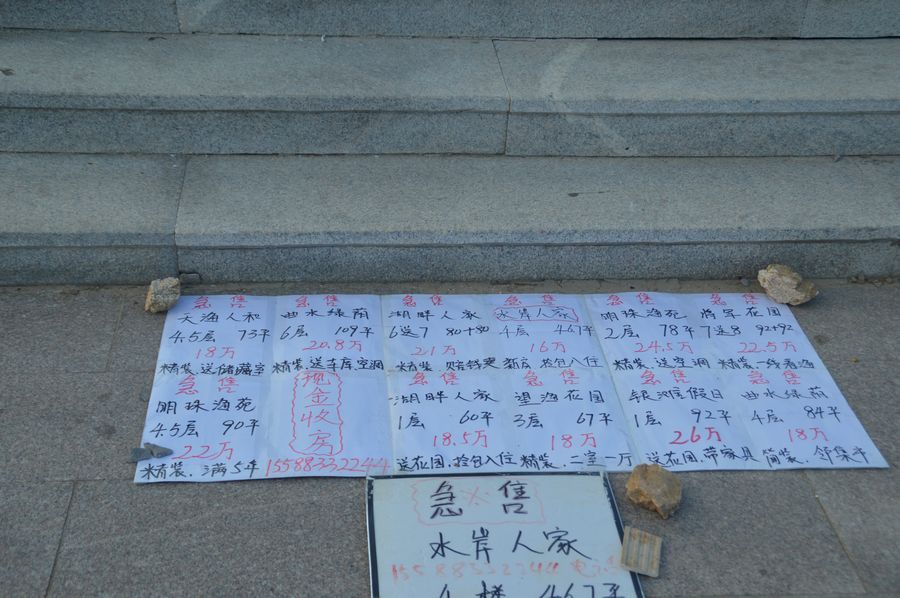 急售
天海人和
4.5层 73平
18万
精装.送储藏室
急售
曲水绿荫
6层 109平
20.8万
精装.送车库空调
急售
湖畔人家
6送7 80+80
21万
精装.赔钱卖
急售
水岸人家
4层 46.7平
16万
新房.拎包入住
急售
明珠海苑
2层 78平
24.5万
精装.送空调
急售
将军花园
7送8 92+92
22.5万
精装.一线看海
急售
明珠海苑
4.5层 90平
22万
米精装.满5年
现金收房
15588332244
急售
湖畔人家
1层 60平
18.5万
送花园.拎包入住
急售
望海花园
3层 67平
18万
精装.二室一厅
急售
银滩假日
1层 92平
26万
送花园.带家具
急售
曲水绿荫
4层 84平
18万
简装.邻集市
急售
水岸人家
15588332244
4楼 46.7平